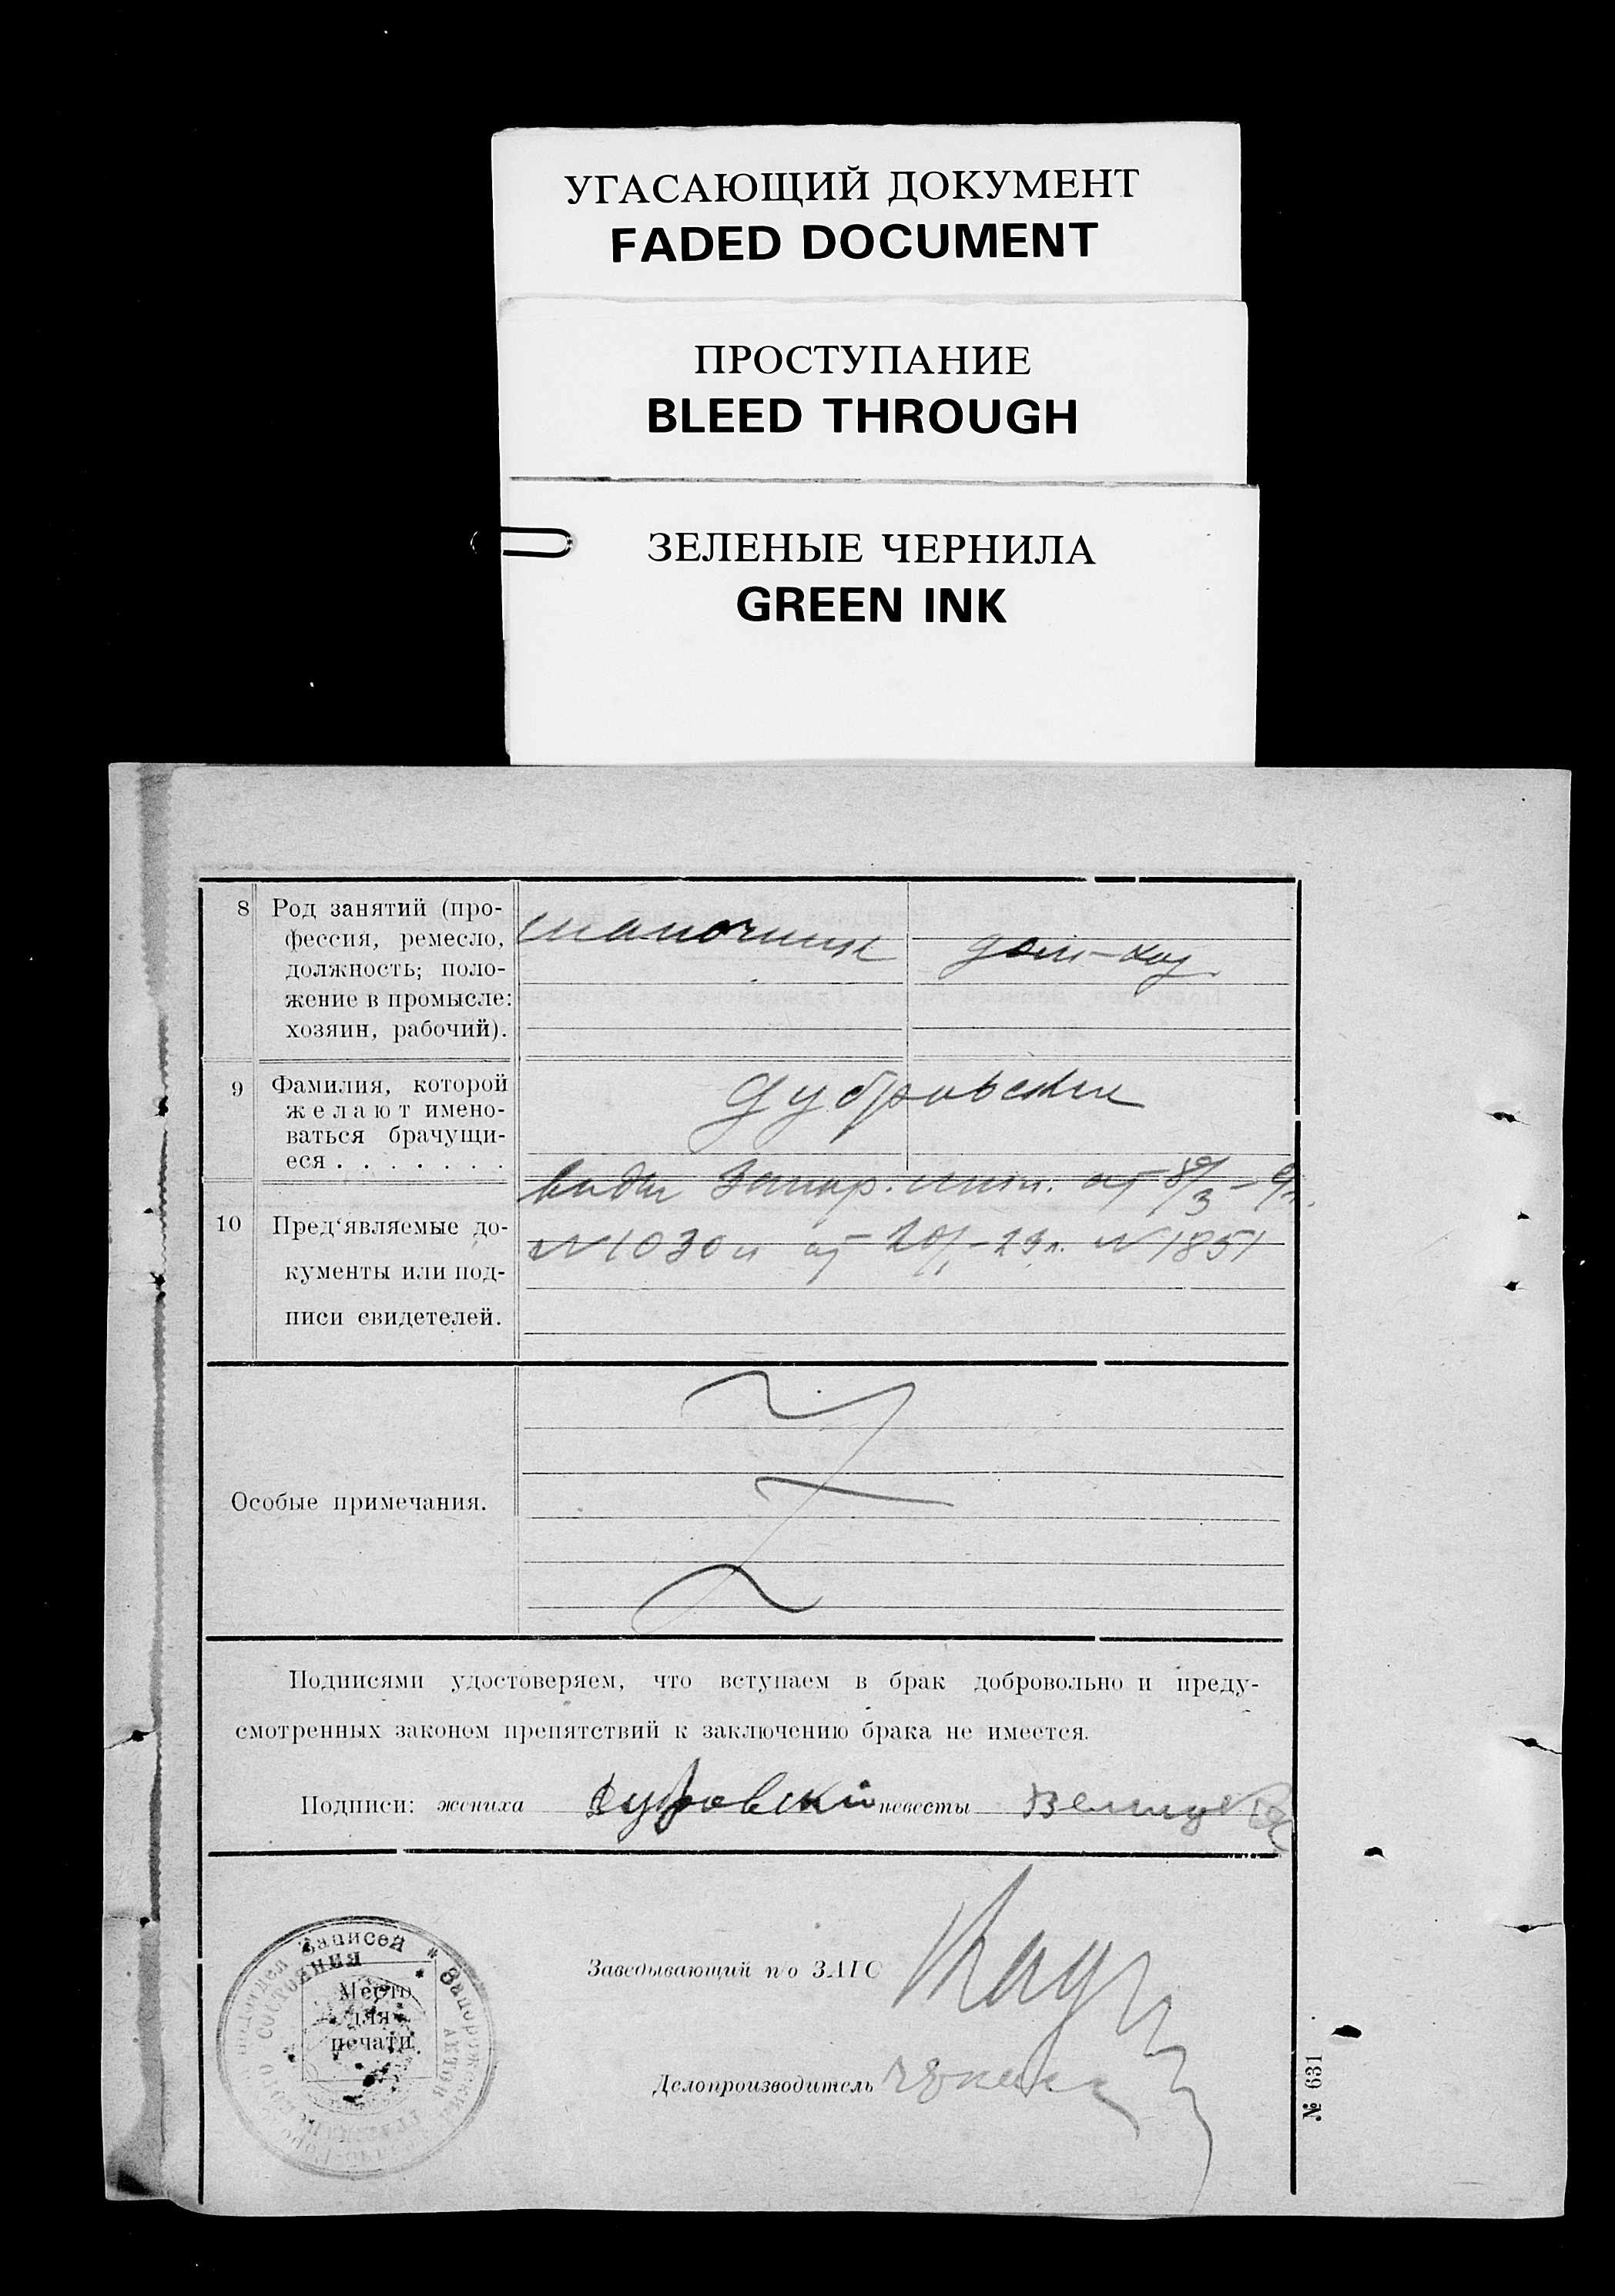 УГАСАЮЩИЙ ДОКУМЕНТ
FADED DOCUMENT
ПРОСТУПАНИЕ
BLEED THROUGH
ЗЕЛЕНЫЕ ЧЕРНИЛА
GREEN INK
8 Род занятий (про-
фессия, ремесло,
должность; поло-
жение в промысле:
хозяин, рабочий).
шапочник
дом-хоз
9 Фамилия, которой
желают имено-
ваться брачущи-
еся . . . . . . .
Дубровские
10 Пред'являемые до-
кументы или под-
писи свидетелей.
виды Запор. мил. от 8/3 -
№ 1030 и от 20/1 - 23 г. № 1851
Особые примечания.
Подписями удостоверяем, что вступаем в брак добровольно и преду-
смотренных законом препятствий к заключению брака не имеется.
Подписи: жениха Дубровский невесты
Заведывающий п/о ЗАГС
Делопроизводитель
Место
для
печати
Записей
состояния
№ 631